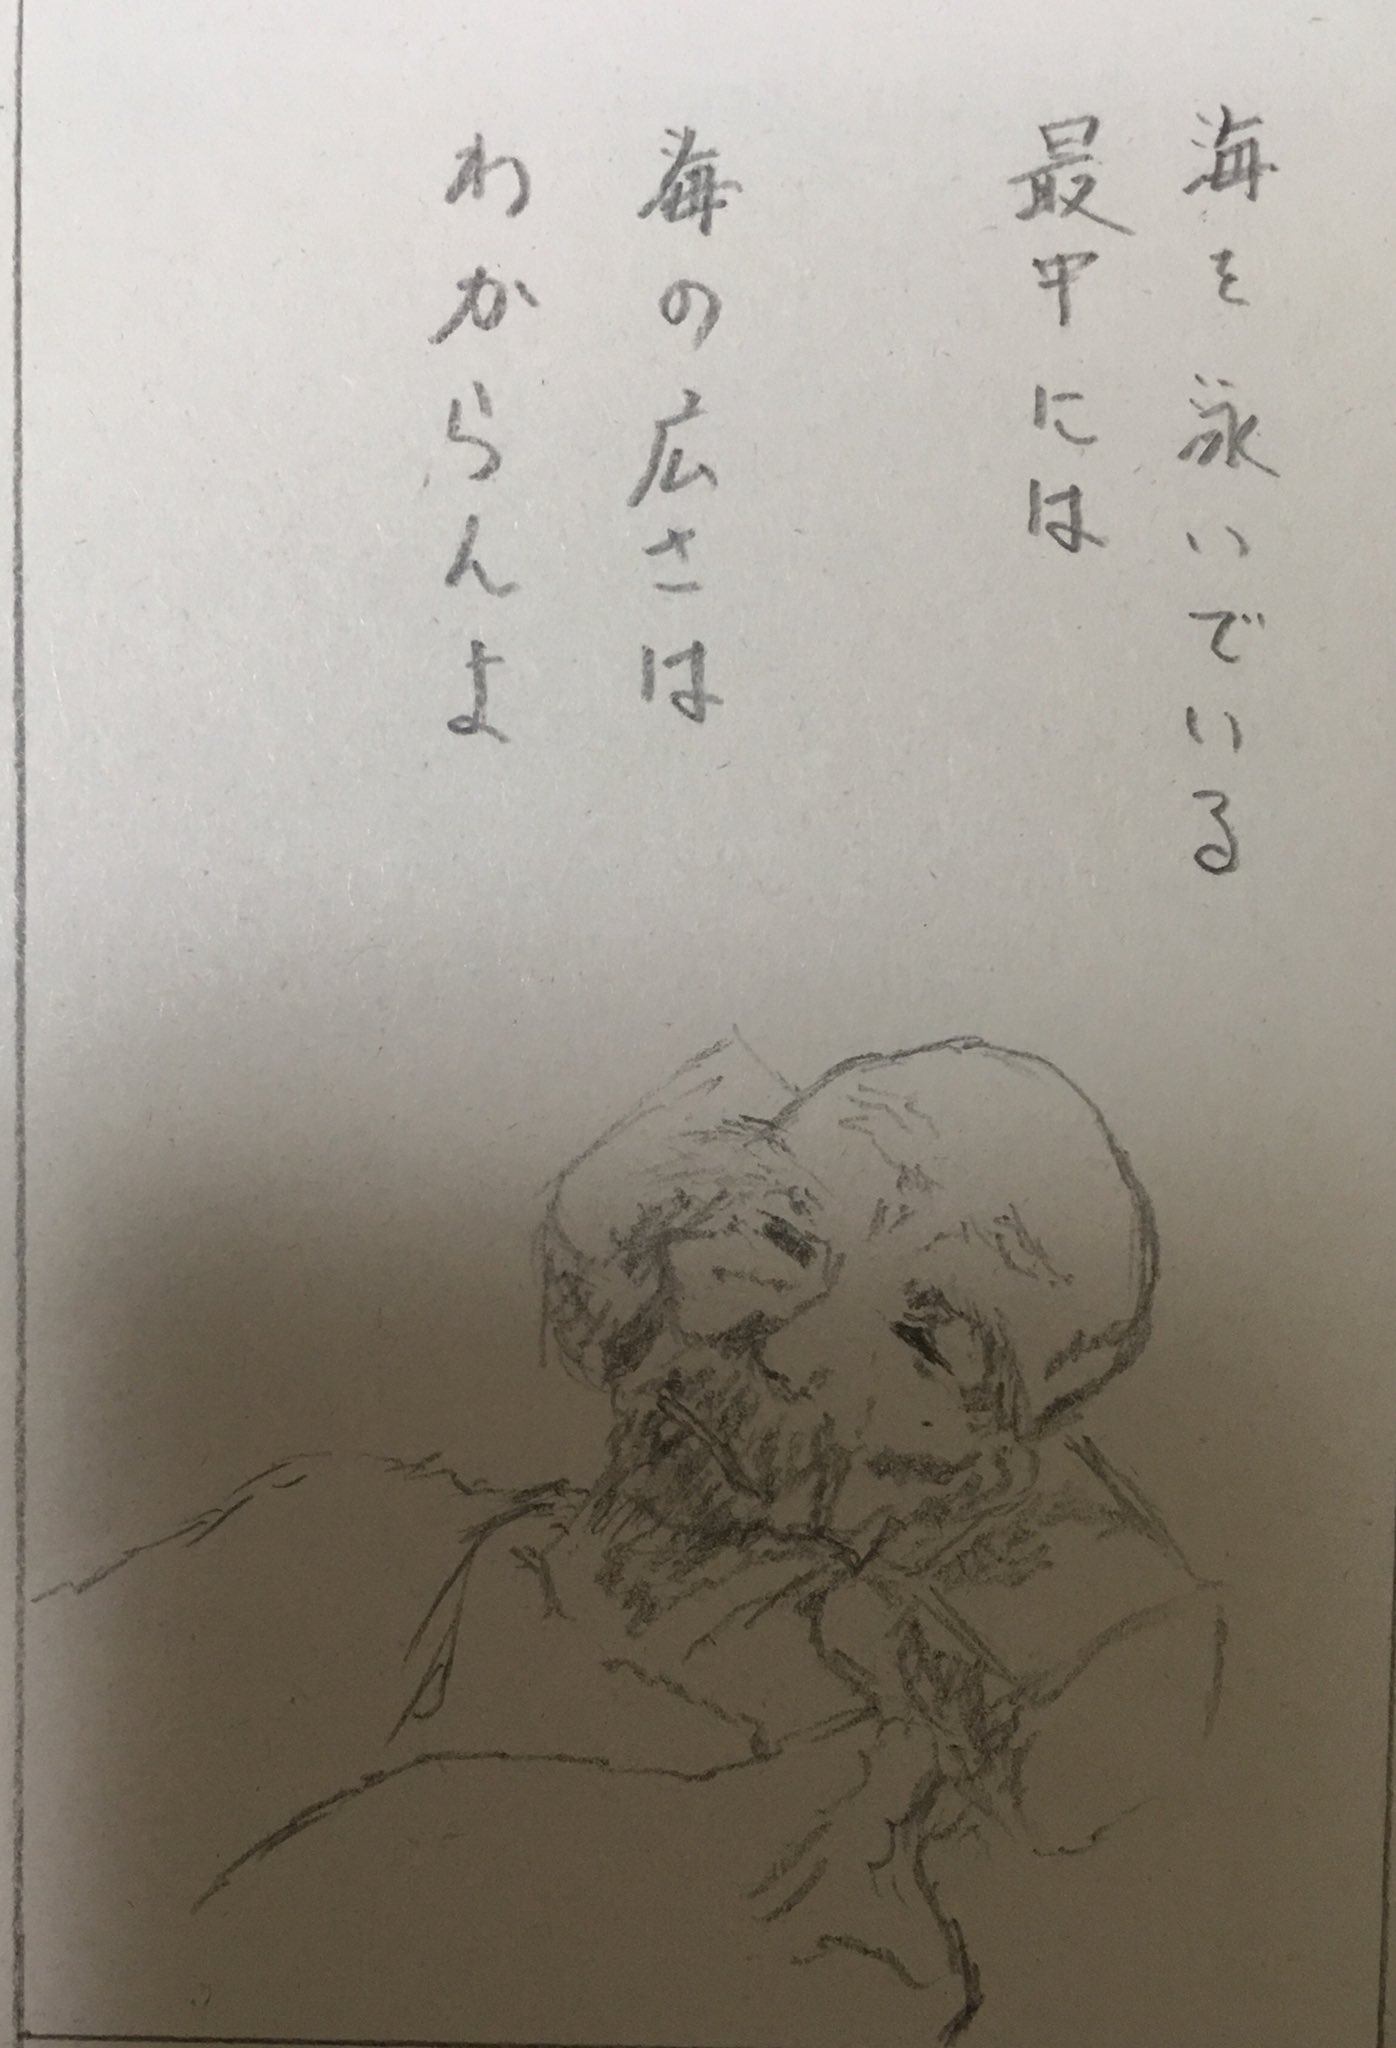 海を泳いでいる
最中には
海の広さは
わからんよ